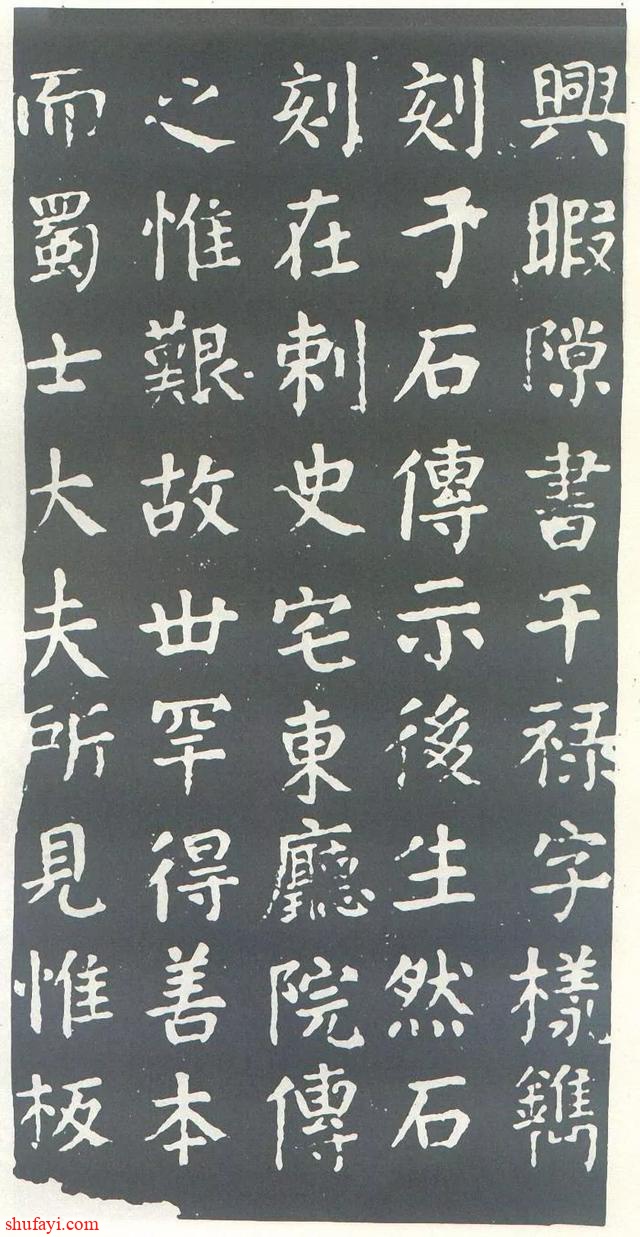 興暇隙書干禄字樣鐫
刻于石傳示後生然石
刻在刺史宅東廳院傳
之惟艱故丗罕得善本
而蜀士大夫所見惟板
shufayi.com